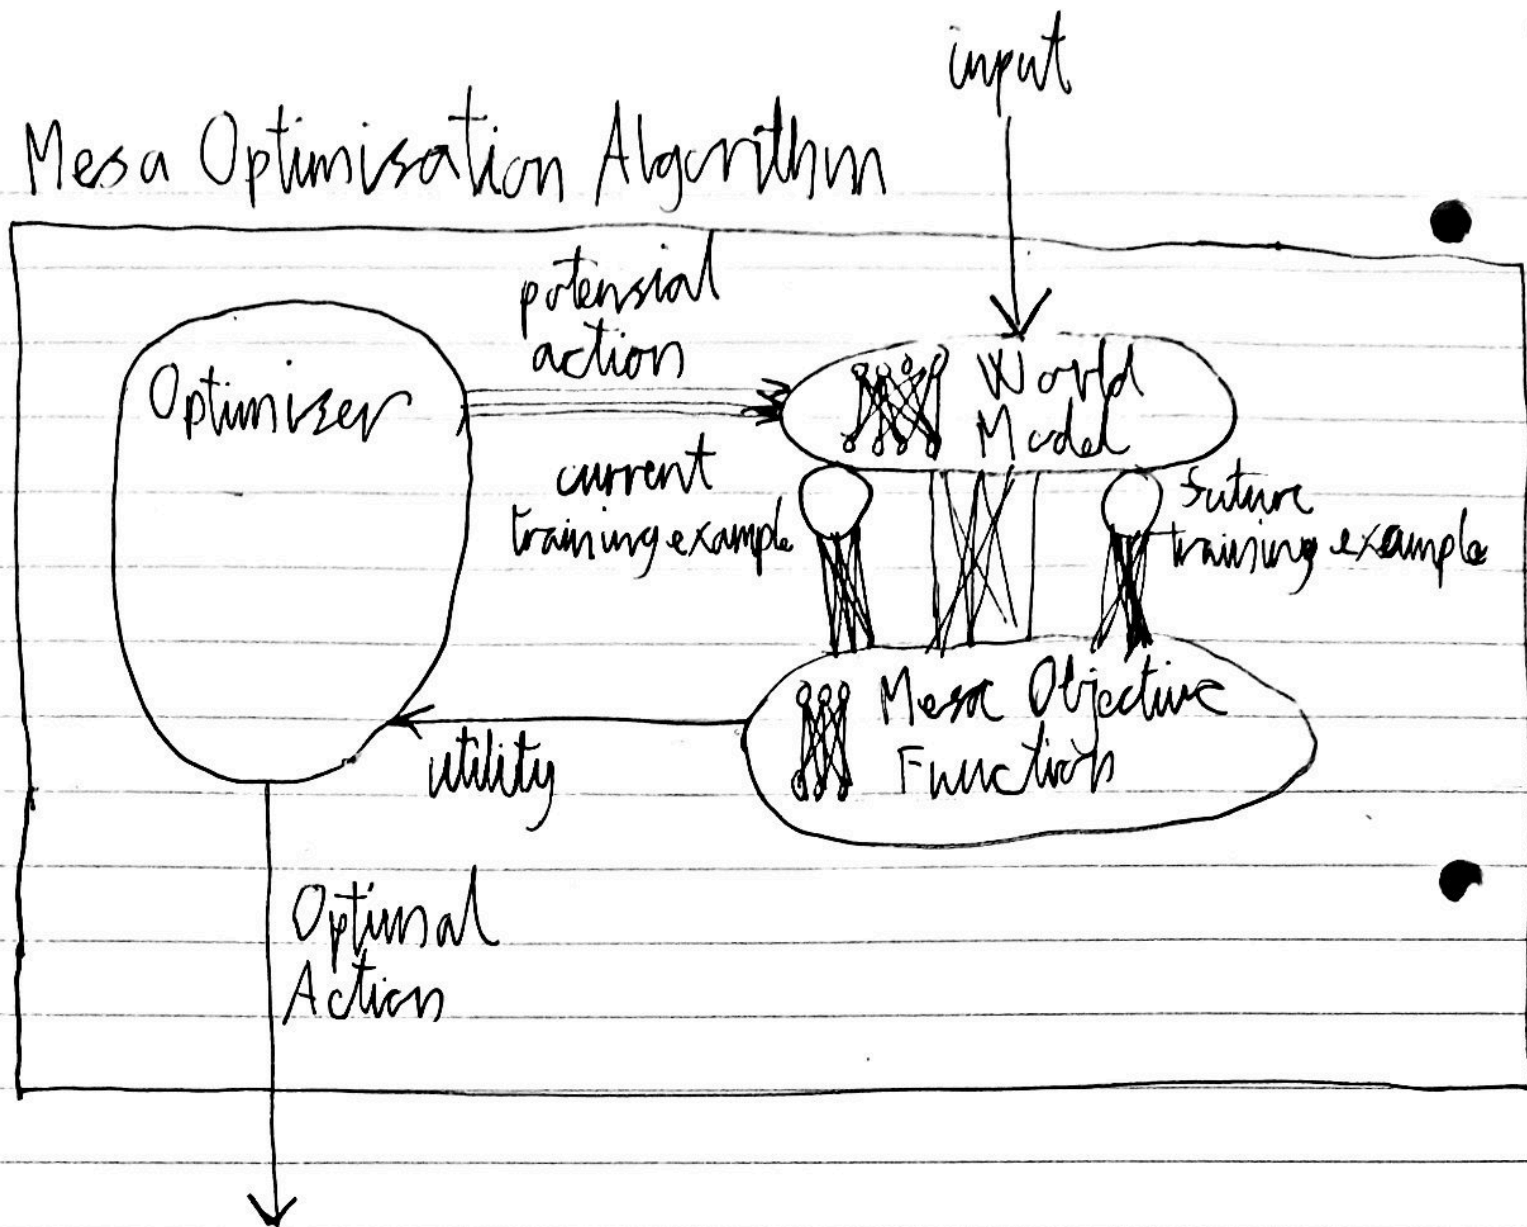 input
Mesa Optimisation Algorithm
potensial
action
Optimiser
World
Model
current
training example
future
training example
Mesa Objective
Function
utility
Optimal
Action